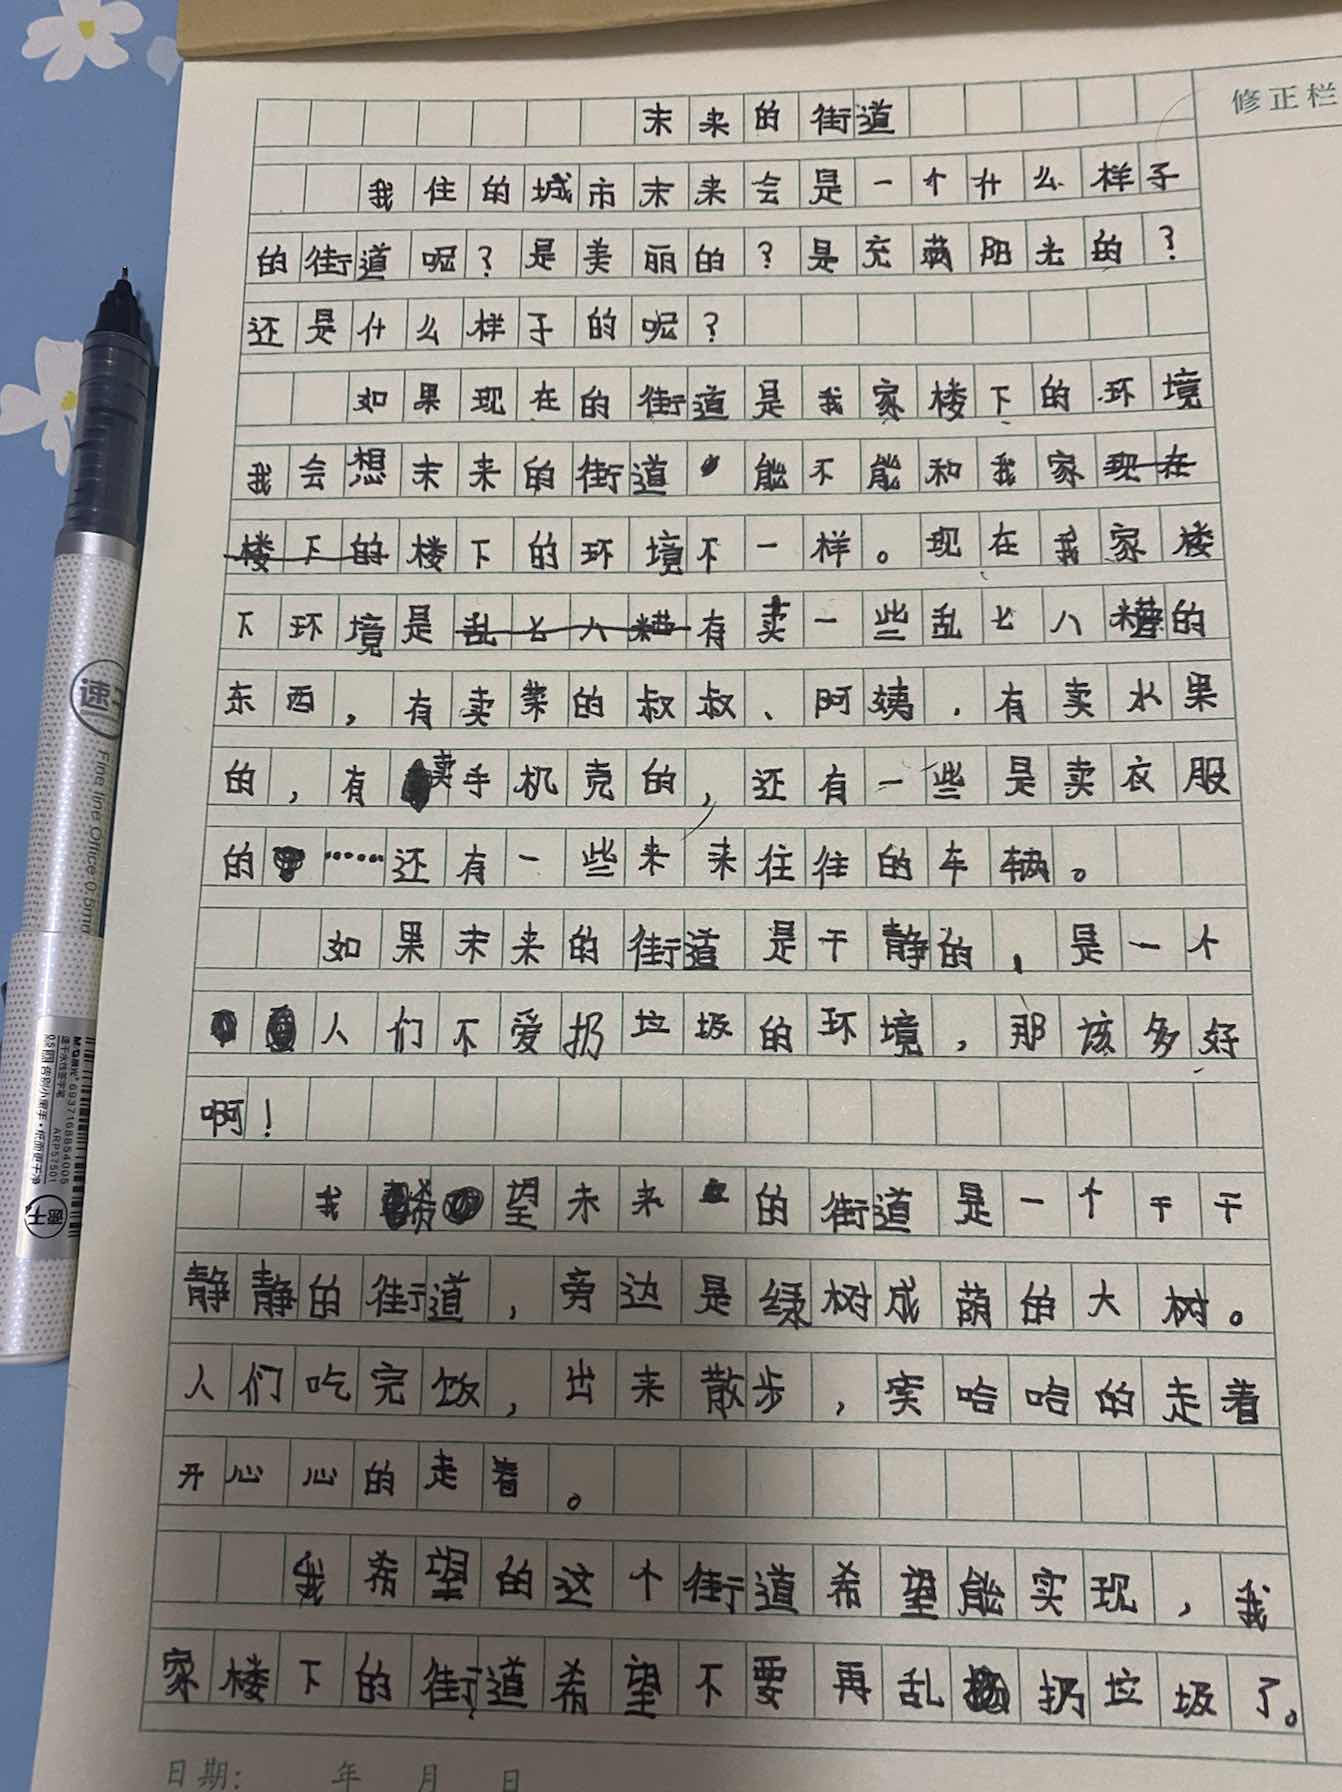 修正栏
末来的街道
我住的城市末来会是一个什么样子
的街道呢?是美丽的?是充满阳光的?
还是什么样子的呢?
如果现在的街道是我家楼下的环境
我会想末来的街道,能不能和我家现在
楼下的楼下的环境不一样。现在我家楼
下环境是乱七八糟有卖一些乱七八糟的
东西,有卖菜的叔叔、阿姨,有卖水果
的,有卖手机壳的,还有一些是卖衣服
的……还有一些来来往往的车辆。
如果末来的街道是干静的,是一个
人们不爱扔垃圾的环境,那该多好
啊!
我希望未来的街道是一个干干
静静的街道,旁边是绿树成荫的大树。
人们吃完饭,出来散步,笑哈哈的走着
开心心的走着。
我希望的这个街道希望能实现,我
家楼下的街道希望不要再乱扔垃圾了。
日期: 年 月 日
速干
Fine line Office 0.5mm
M&G晨光
速干水性签字笔
6937168854005
ARP57501
告别小黑手·低而更干净
速干